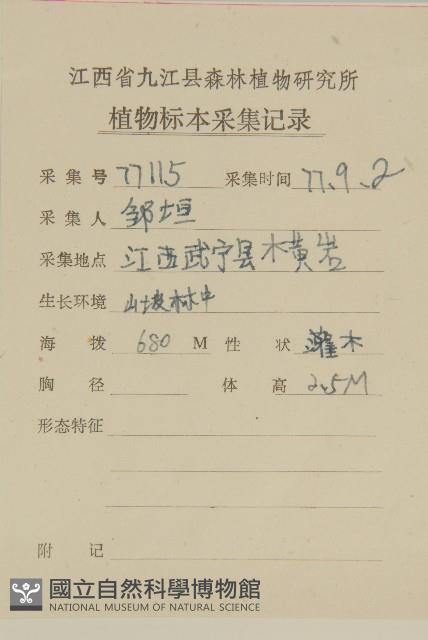 江西省九江县森林植物研究所
植物标本采集记录
采集号 77115 采集时间 77.9.2
采集人 邹垣
采集地点 江西武宁县木黄岩
生长环境 山坡林中
海拨 680 M 性状 灌木
胸径 体高 2.5M
形态特征
附记
國立自然科學博物館
NATIONAL MUSEUM OF NATURAL SCIENCE